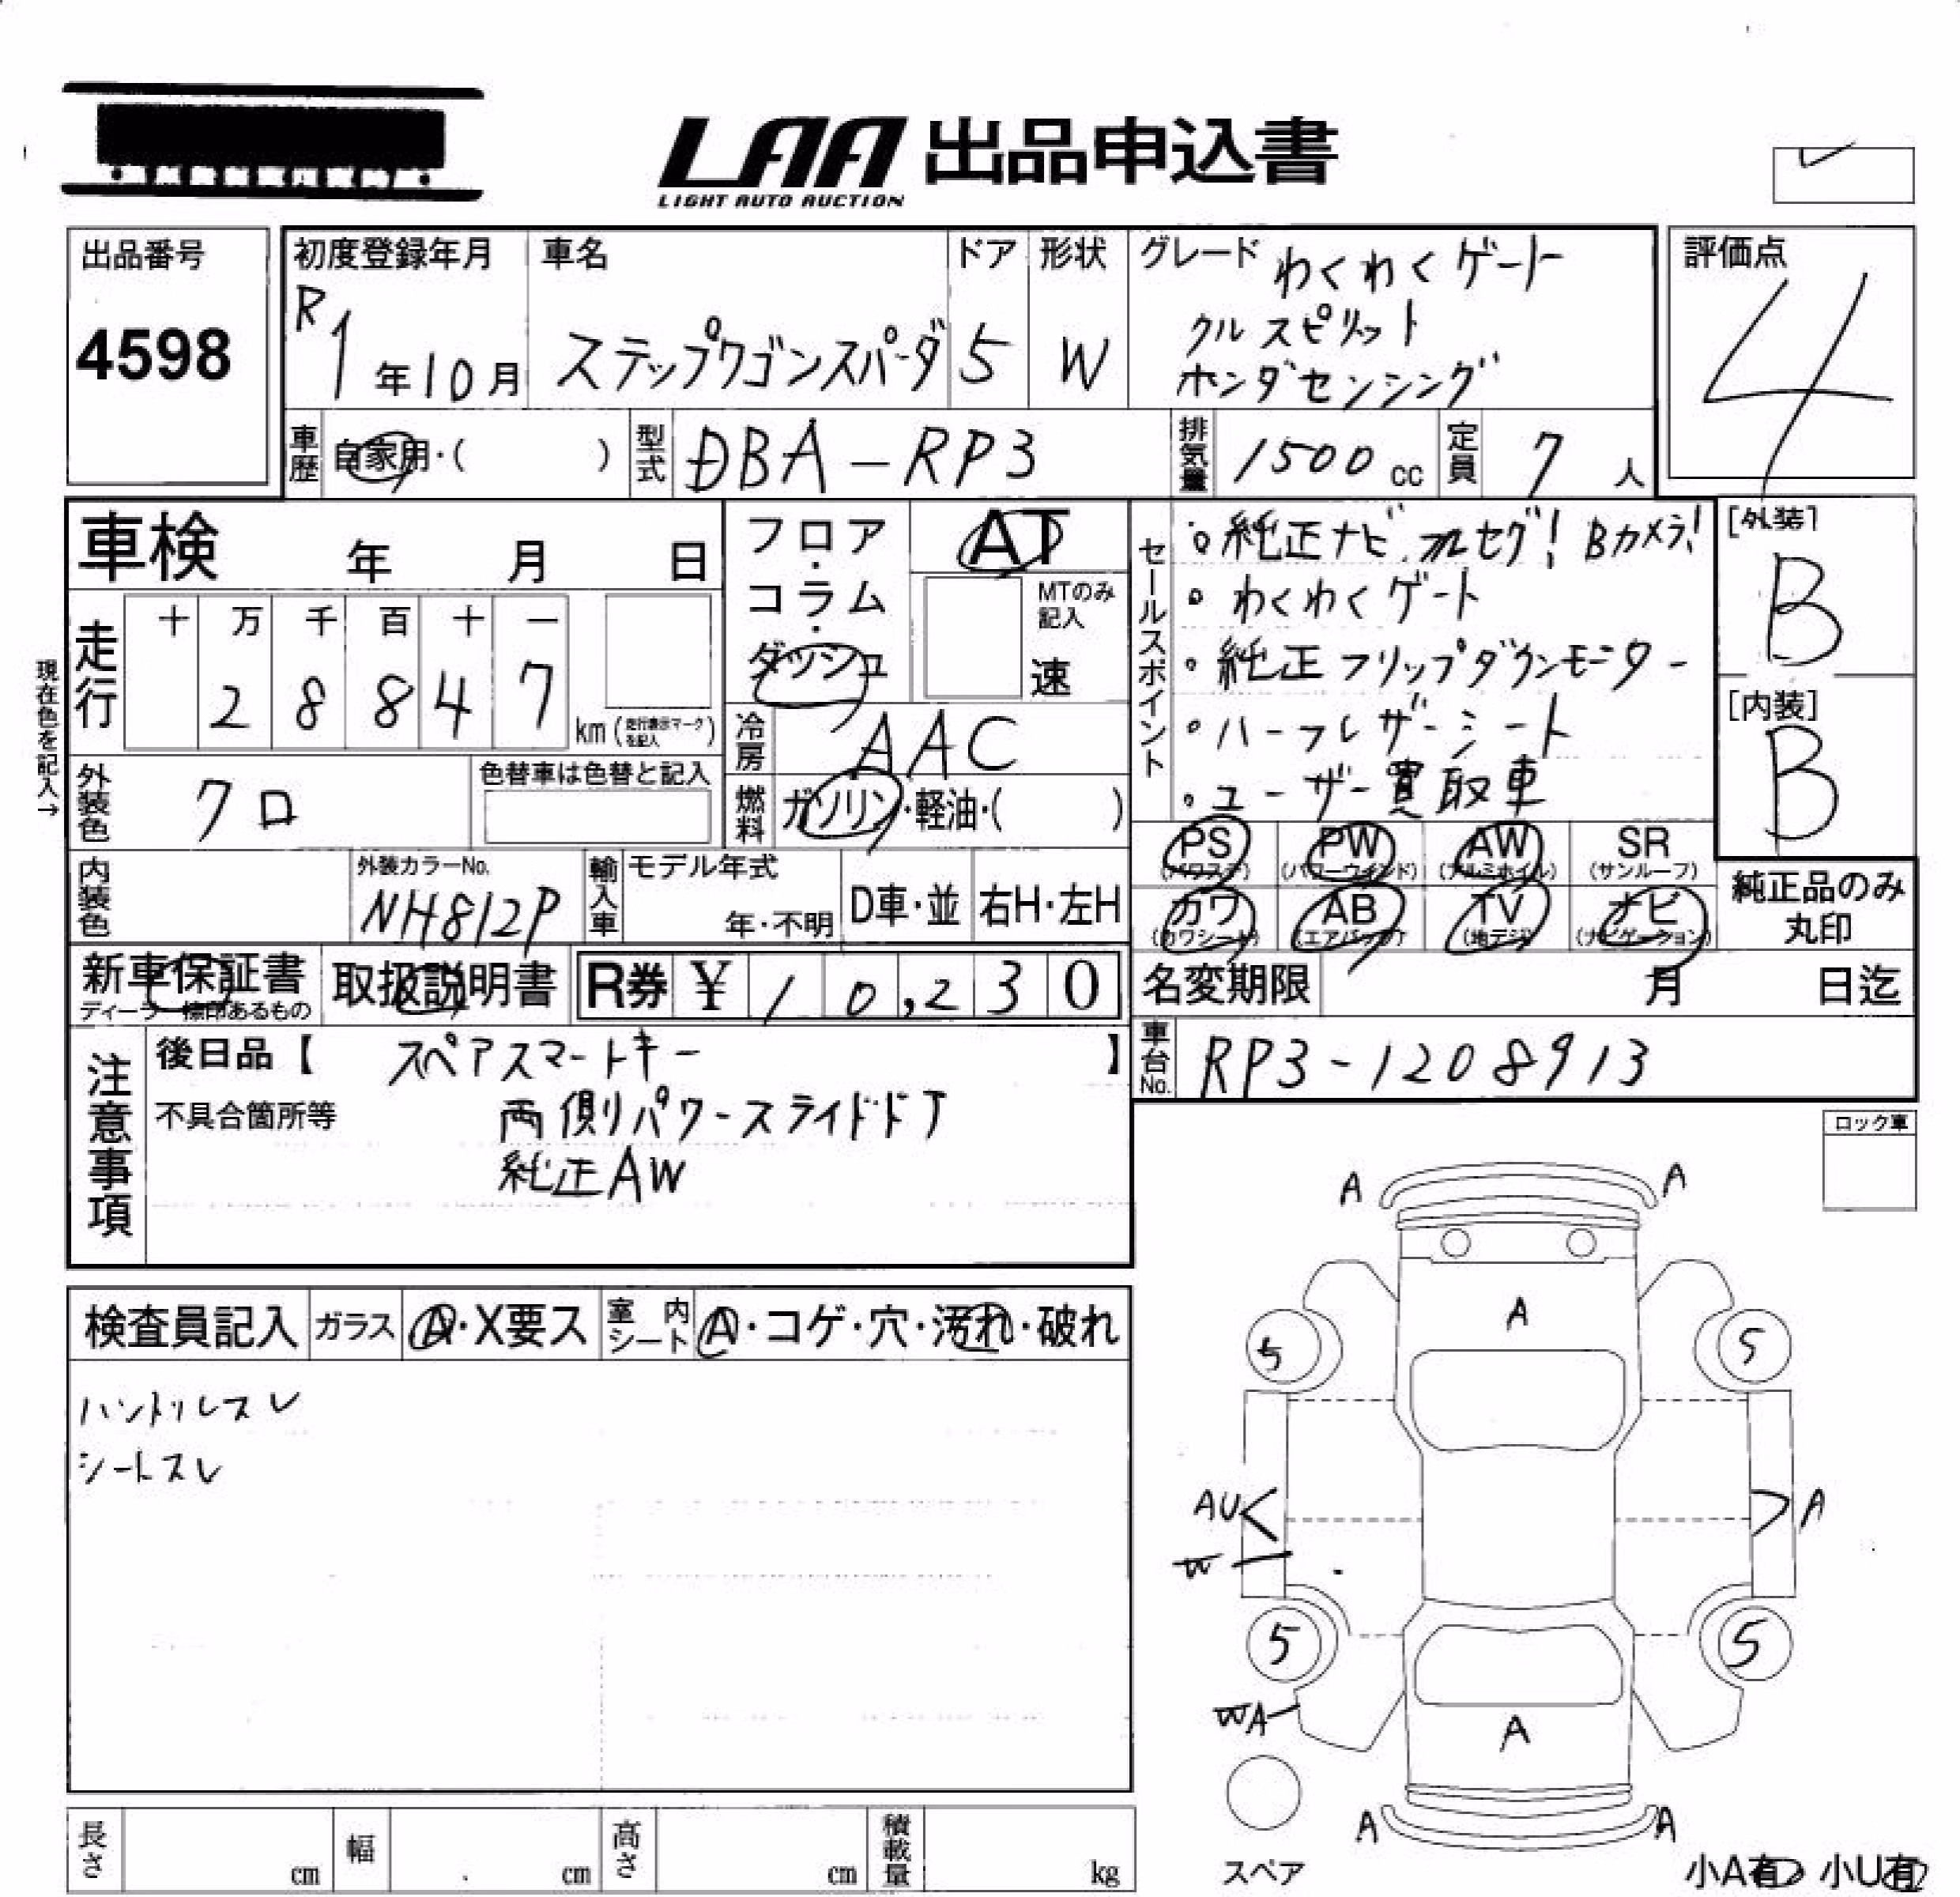 LAA 出品申込書
LIGHT AUTO AUCTION
出品番号
4598
初度登録年月
R1年10月
車名
ステップワゴンスパーダ
ドア
5
形状
W
グレード わくわくゲート
クルスピリット
ホンダセンシング
評価点
4
車歴 自家用・( )
型式 DBA-RP3
排気量 1500cc
定員 7人
車検 年 月 日
フロア・コラム・ダッシュ
AT
MTのみ記入
速
セールスポイント
・純正ナビ フルセグ! Bカメラ!
・わくわくゲート
・純正フリップダウンモニター
・ハーフレザーシート
・ユーザー買取車
[外装]
B
[内装]
B
現在色を記入→
走行
十 万 千 百 十 一
2 8 8 4 7
km(走行表示マークを記入)
冷房 AAC
外装色 クロ
色替車は色替と記入
燃料 ガソリン・軽油・( )
PS (パワステ) PW (パワーウインド) AW (アルミホイル) SR (サンルーフ)
カワ (カワシート) AB (エアバック) TV (地デジ) ナビ (ナビゲーション)
純正品のみ丸印
内装色
外装カラーNo.
NH812P
輸入車
モデル年式
年・不明
D車・並
右H・左H
新車保証書
ディーラー標印あるもの
取扱説明書
R券 ¥10,230
名変期限 月 日迄
車台No. RP3-1208913
注意事項
後日品【 スペアスマートキー 】
不具合箇所等 両側パワースライドドア
純正AW
ロック車
検査員記入
ガラス A・X要ス
室内シート A・コゲ・穴・汚れ・破れ
ハンドルスレ
シートスレ
A A
A
5 5
AU A
W
5 5
WA
A
A A
スペア
小A有 小U有
長さ cm
幅 cm
高さ cm
積載量 kg